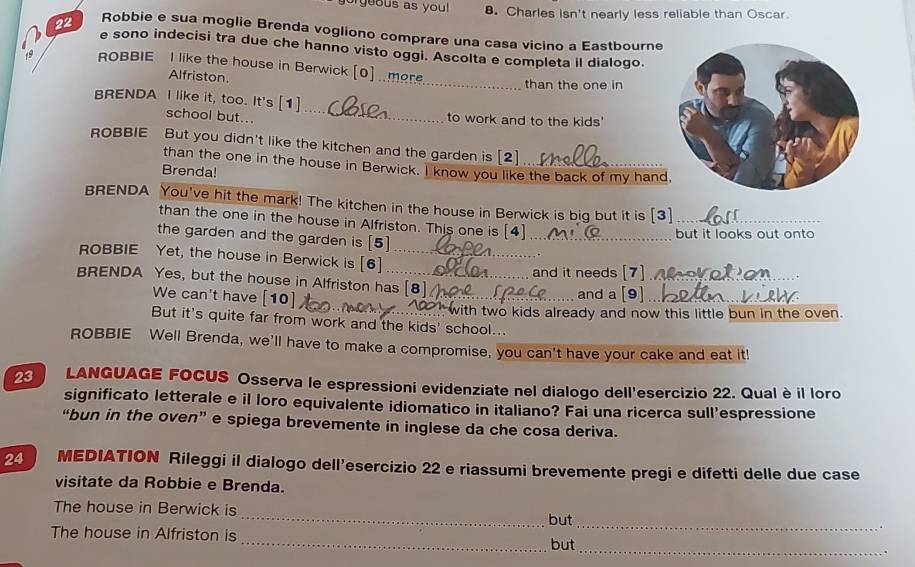 gorgeous as you!
8. Charles isn't nearly less reliable than Oscar.
22 Robbie e sua moglie Brenda vogliono comprare una casa vicino a Eastbourne
e sono indecisi tra due che hanno visto oggi. Ascolta e completa il dialogo.
19
ROBBIE I like the house in Berwick [0] more than the one in
Alfriston.
BRENDA I like it, too. It's [1] closer to work and to the kids'
school but...
ROBBIE But you didn't like the kitchen and the garden is [2] smaller
than the one in the house in Berwick. I know you like the back of my hand,
Brenda!
BRENDA You've hit the mark! The kitchen in the house in Berwick is big but it is [3] less
than the one in the house in Alfriston. This one is [4] nice but it looks out onto
the garden and the garden is [5] larger.
ROBBIE Yet, the house in Berwick is [6] older and it needs [7] renovation.
BRENDA Yes, but the house in Alfriston has [8] more space and a [9] better view.
We can't have [10] too many room with two kids already and now this little bun in the oven.
But it's quite far from work and the kids' school...
ROBBIE Well Brenda, we'll have to make a compromise, you can't have your cake and eat it!
23 LANGUAGE FOCUS Osserva le espressioni evidenziate nel dialogo dell'esercizio 22. Qual è il loro
significato letterale e il loro equivalente idiomatico in italiano? Fai una ricerca sull'espressione
"bun in the oven" e spiega brevemente in inglese da che cosa deriva.
24 MEDIATION Rileggi il dialogo dell'esercizio 22 e riassumi brevemente pregi e difetti delle due case
visitate da Robbie e Brenda.
The house in Berwick is but .
The house in Alfriston is but .